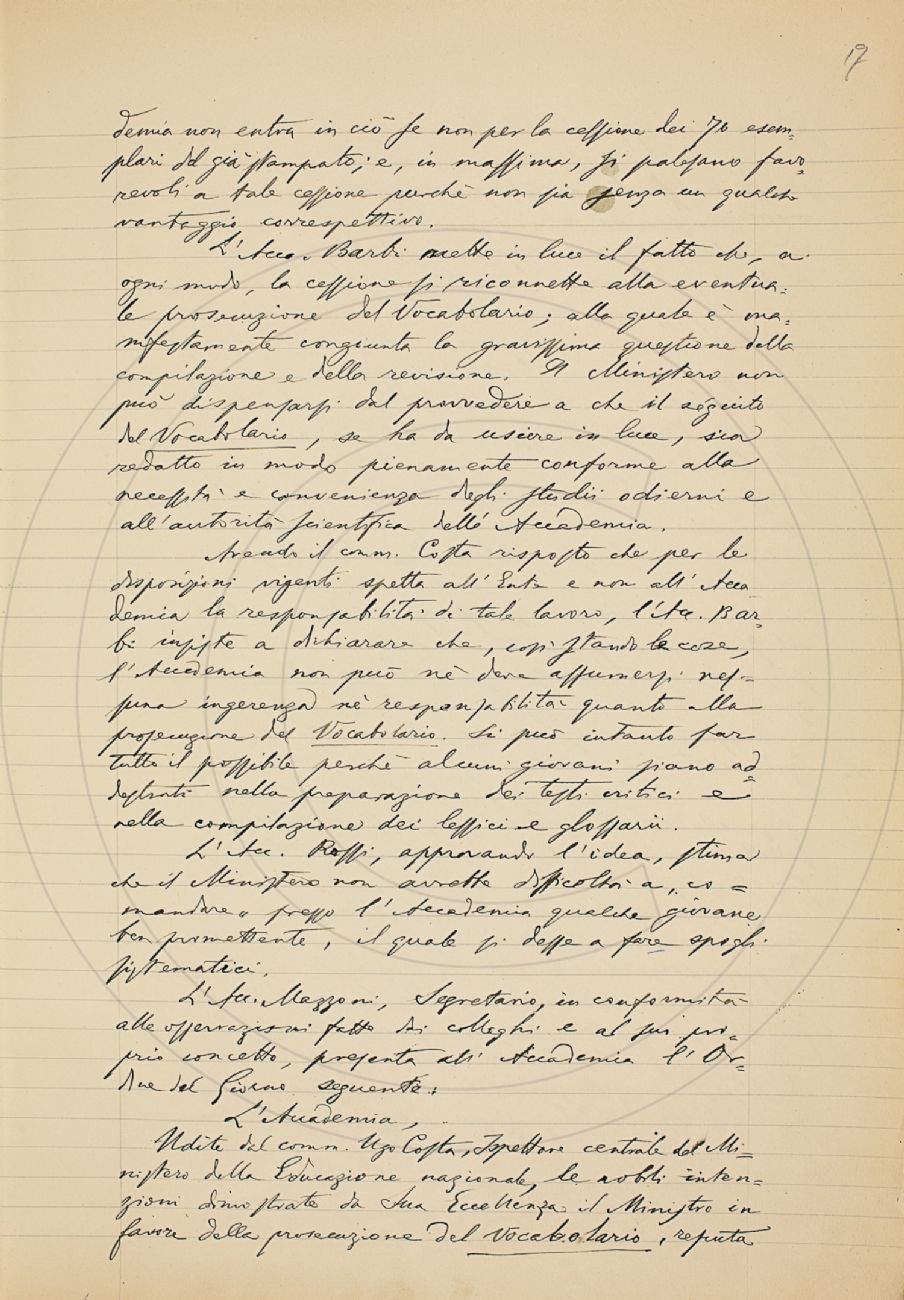 17
demia non entra in ciò se non per la cessione dei 70 esem=
plari del già stampato; e, in massima, si palesano favo=
revoli a tale cessione purchè non sia senza un qualche
vantaggio correspettivo.
L'Acc. Barbi mette in luce il fatto che, a
ogni modo, la cessione si riconnette alla eventua=
le prosecuzione del Vocabolario; alla quale è ma=
nifestamente congiunta la gravissima questione della
compilazione e della revisione. Il Ministero non
può dispensarsi dal provvedere a che il séguito
del Vocabolario, se ha da uscire in luce, sia
redatto in modo pienamente conforme alla
necessità e convenienza degli studii odierni e
all'autorità scientifica dell'Accademia.
Avendo il comm. Costa risposto che per le
disposizioni vigenti spetta all'Ente e non all'Acca
demia la responsabilità di tale lavoro, l'Acc. Bar=
bi insiste a dichiarare che, così stando le cose,
l'Accademia non può nè deve assumersi nes=
suna ingerenza nè responsabilità quanto alla
prosecuzione del Vocabolario. Si può intanto far
tutto il possibile perchè alcuni giovani siano ad=
destrati nella preparazione dei testi critici e
nella compilazione dei lessici e glossarii.
L'Acc. Rossi, approvando l'idea, stima
che il Ministero non avrebbe difficoltà a „co=
mandare„ presso l'Accademia qualche giovane
ben promettente, il quale si desse a fare spogli
sistematici.
L'Acc. Mazzoni, Segretario, in conformità
alle osservazioni fatte dai colleghi e al suo pro=
prio concetto, presenta all'Accademia l'Or=
dine del Giorno seguente:
L'Accademia,
Udite dal comm. Ugo Costa, Ispettore centrale del Mi=
nistero della Educazione nazionale, le nobili inten=
zioni dimostrate da Sua Eccellenza il Ministro in
favore della prosecuzione del Vocabolario, reputa